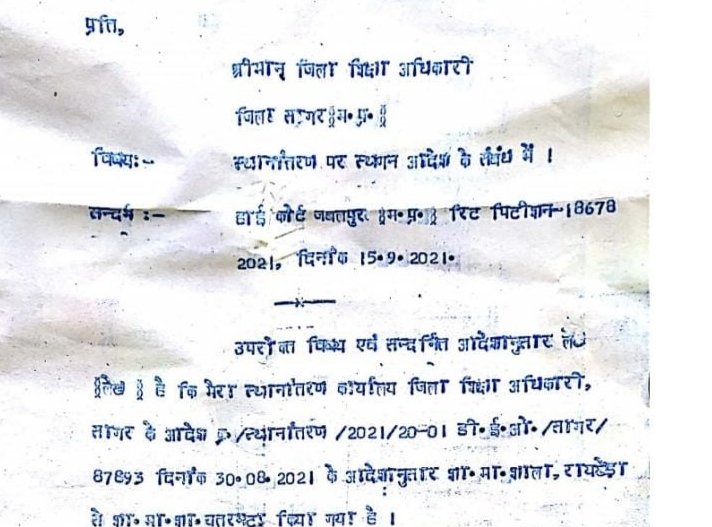 प्रति,
श्रीमान् जिला शिक्षा अधिकारी
जिला सागर §म•प्र•§
विषय:-
स्थानांतरण पर स्थगन आदेश के संबंध में ।
सन्दर्भ :-
हाई कोर्ट जबलपुर §म•प्र•§ रिट पिटीशन-18678
2021, दिनाँक 15•9•2021•
उपरोक्त विषय एवं सन्दर्भित आदेशानुसार
§लेख § है कि मेरा स्थानांतरण कार्यालय जिला शिक्षा अधिकारी,
सागर के आदेश क्र/स्थानांतरण /2021/20-01 डी•ई•ओ•/सागर/
87893 दिनाँक 30•08•2021 के आदेशानुसार शा•मा•शाला,
से शा•मा•शा• किया गया है ।